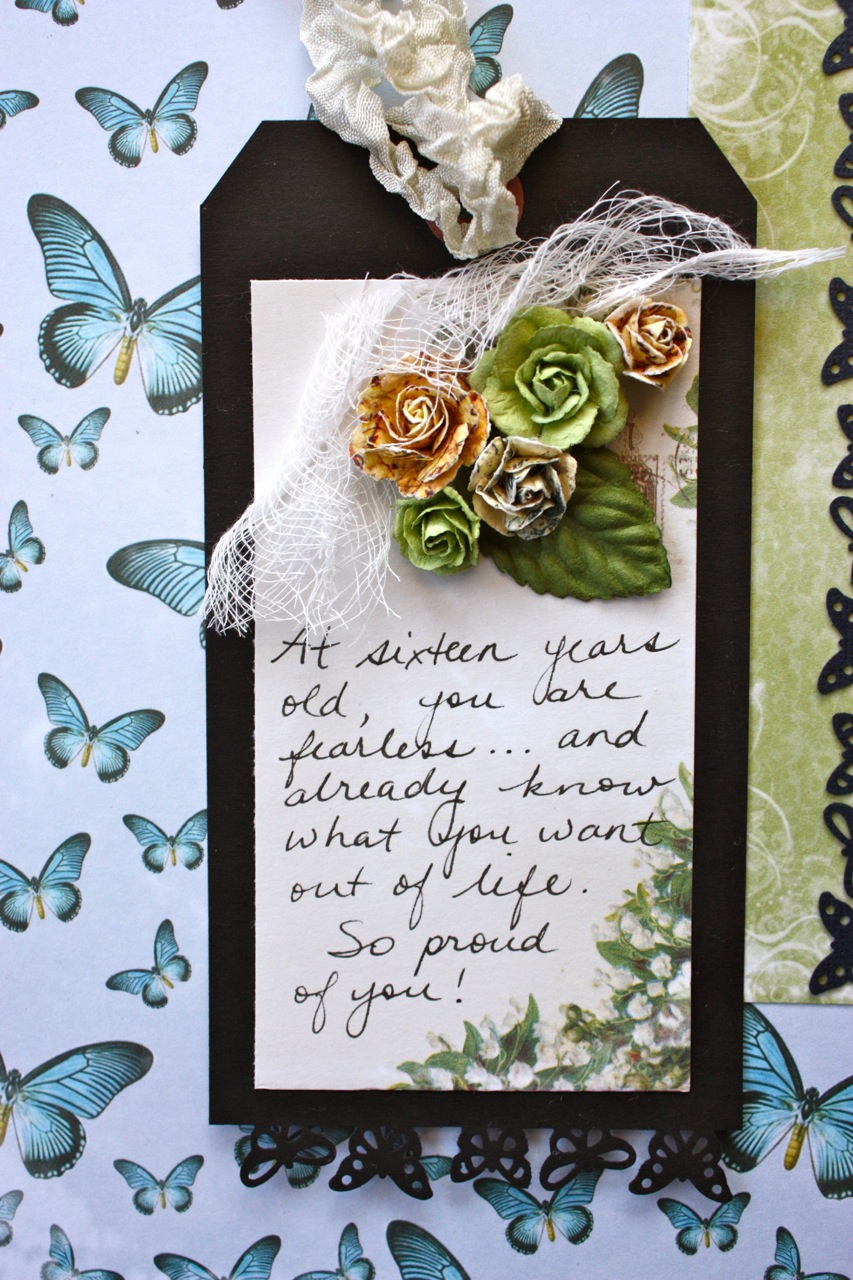 At sixteen years
old, you are
fearless... and
already know
what you want
out of life.
So proud
of you!